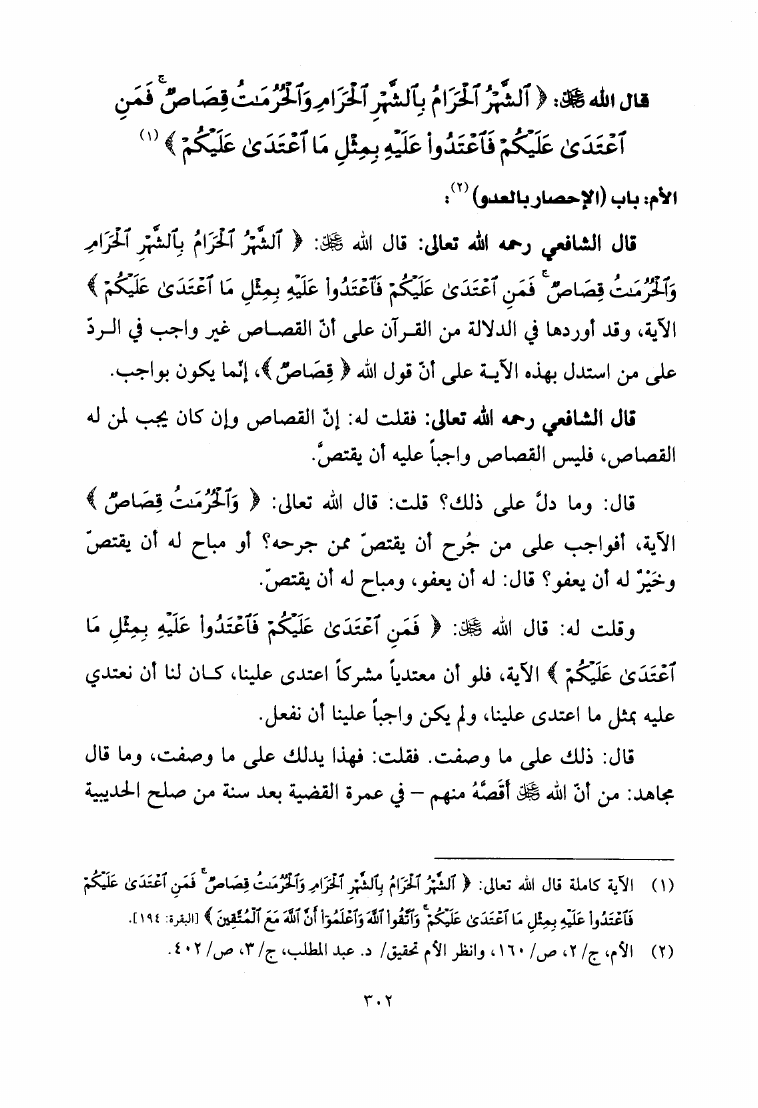 قال الله ﷻ: ﴿ ٱلشَّهْرُ ٱلْحَرَامُ بِٱلشَّهْرِ ٱلْحَرَامِ وَٱلْحُرُمَٰتُ قِصَاصٌ ۚ فَمَنِ
ٱعْتَدَىٰ عَلَيْكُمْ فَٱعْتَدُوا۟ عَلَيْهِ بِمِثْلِ مَا ٱعْتَدَىٰ عَلَيْكُمْ ﴾ (١)
الأم: باب (الإحصار بالعدو) (٢):
قال الشافعي رحمه الله تعالى: قال الله ﷻ: ﴿ ٱلشَّهْرُ ٱلْحَرَامُ بِٱلشَّهْرِ ٱلْحَرَامِ
وَٱلْحُرُمَٰتُ قِصَاصٌ ۚ فَمَنِ ٱعْتَدَىٰ عَلَيْكُمْ فَٱعْتَدُوا۟ عَلَيْهِ بِمِثْلِ مَا ٱعْتَدَىٰ عَلَيْكُمْ ﴾
الآية، وقد أوردها في الدلالة من القـرآن على أنّ القصـاص غير واجب في الـردّ
على من استدل بهذه الآيـة على أنّ قول الله ﴿ قِصَاصٌ ﴾، إنّما يكون بواجب.
قال الشافعي رحمه الله تعالى: فقلت له: إنّ القصاص وإن كان يجب لمن له
القصاص، فليس القصاص واجباً عليه أن يقتصَّ.
قال: وما دلَّ على ذلك؟ قلت: قال الله تعالى: ﴿ وَٱلْحُرُمَٰتُ قِصَاصٌ ﴾
الآية، أفواجب على من جُرح أن يقتصّ ممن جرحه؟ أو مباح له أن يقتصّ
وخَيْرٌ له أن يعفو؟ قال: له أن يعفو، ومباح له أن يقتصّ.
وقلت له: قال الله ﷻ: ﴿ فَمَنِ ٱعْتَدَىٰ عَلَيْكُمْ فَٱعْتَدُوا۟ عَلَيْهِ بِمِثْلِ مَا
ٱعْتَدَىٰ عَلَيْكُمْ ﴾ الآية، فلو أن معتدياً مشركاً اعتدى علينا، كـان لنا أن نعتدي
عليه بمثل ما اعتدى علينا، ولم يكن واجباً علينا أن نفعل.
قال: ذلك على ما وصفت. فقلت: فهذا يدلك على ما وصفت، وما قال
مجاهد: من أنّ الله ﷻ أَقَصَّهُ منهم – في عمرة القضية بعد سنة من صلح الحديبية
(١) الآية كاملة قال الله تعالى: ﴿ ٱلشَّهْرُ ٱلْحَرَامُ بِٱلشَّهْرِ ٱلْحَرَامِ وَٱلْحُرُمَٰتُ قِصَاصٌ ۚ فَمَنِ ٱعْتَدَىٰ عَلَيْكُمْ
فَٱعْتَدُوا۟ عَلَيْهِ بِمِثْلِ مَا ٱعْتَدَىٰ عَلَيْكُمْ ۚ وَٱتَّقُوا۟ ٱللَّهَ وَٱعْلَمُوٓا۟ أَنَّ ٱللَّهَ مَعَ ٱلْمُتَّقِينَ ﴾ [البقرة: ١٩٤].
(٢) الأم، ج/٢، ص/١٦٠، وانظر الأم تحقيق/ د. عبد المطلب، ج/٣، ص/٤٠٢.
٣٠٢